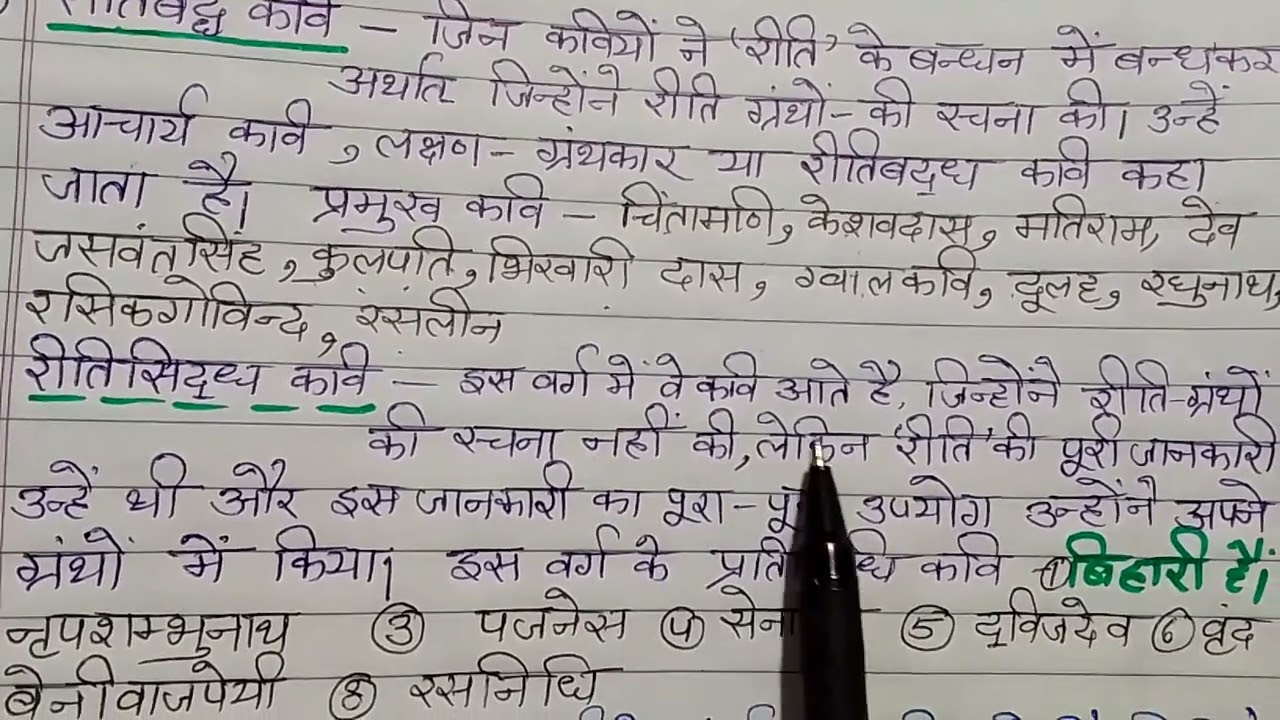 कवि – जिन कवियों ने 'रीति' के बन्धन में बन्धकर
अर्थात जिन्होंने रीति ग्रंथों- की रचना की। उन्हें
आचार्य कवि, लक्षण-ग्रंथकार या रीतिबद्ध कवि कहा
जाता है। प्रमुख कवि – चिंतामणि, केशवदास, मतिराम, देव
जसवंतसिंह, कुलपति, भिखारी दास, ग्वालकवि, दूलह, रघुनाथ,
रसिकगोविन्द, रसलीन
रीतिसिद्ध कवि – इस वर्ग में वे कवि आते है, जिन्होंने रीति-ग्रंथों
की रचना नहीं की, लेकिन 'रीति' की पूरी जानकारी
उन्हें थी और इस जानकारी का पूरा- उपयोग उन्होंने अपने
ग्रंथों में किया। इस वर्ग के कवि ① बिहारी हैं।
नृपशम्भुनाथ ③ पजनेस ④ ⑤ द्विजदेव ⑥ वृंद
बेनीवाजपेयी ⑧ रसनिधि